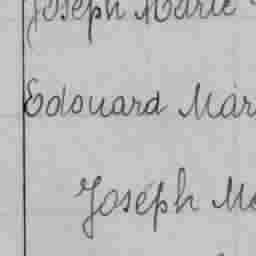 Joseph Marie
Edouard Mar
Joseph Ma